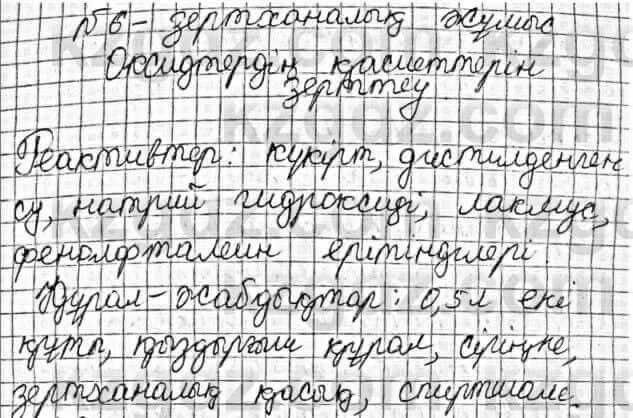 №6 - зертханалық жұмыс
Оксидтердің қасиеттерін
зерттеу
Реактивтер: күкірт, дистилденген
су, натрий гидроксиді, лакмус,
фенолфталеин ерітінділері
Құрал-жабдықтар: 0,5л екі
құты, қыздырғыш құрал, сіріңке,
зертханалық қасық, спиртшам.